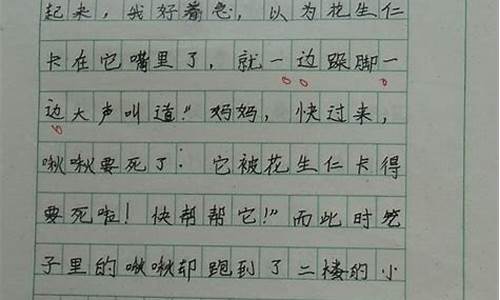 起来，我好着急，以为花生仁
卡在它嘴里了，就一边跺脚一
边大声叫道："妈妈，快过来，
啾啾要死了：它被花生仁卡得
要死啦！快帮帮它！"而此时笼
子里的啾啾却跑到了二楼的小